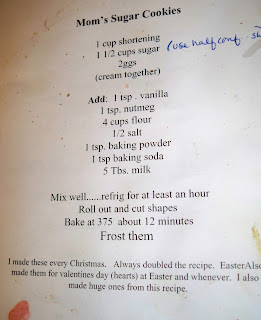 Mom's Sugar Cookies
1 cup shortening
1 1/2 cups sugar (use half conf.
2ggs
(cream together)
Add: 1 tsp . vanilla
1 tsp. nutmeg
4 cups flour
1/2 salt
1 tsp. baking powder
1 tsp baking soda
5 Tbs. milk
Mix well......refrig for at least an hour
Roll out and cut shapes
Bake at 375 about 12 minutes
Frost them
I made these every Christmas. Always doubled the recipe. EasterAlso
made them for valentines day (hearts) at Easter and whenever. I also
made huge ones from this recipe.